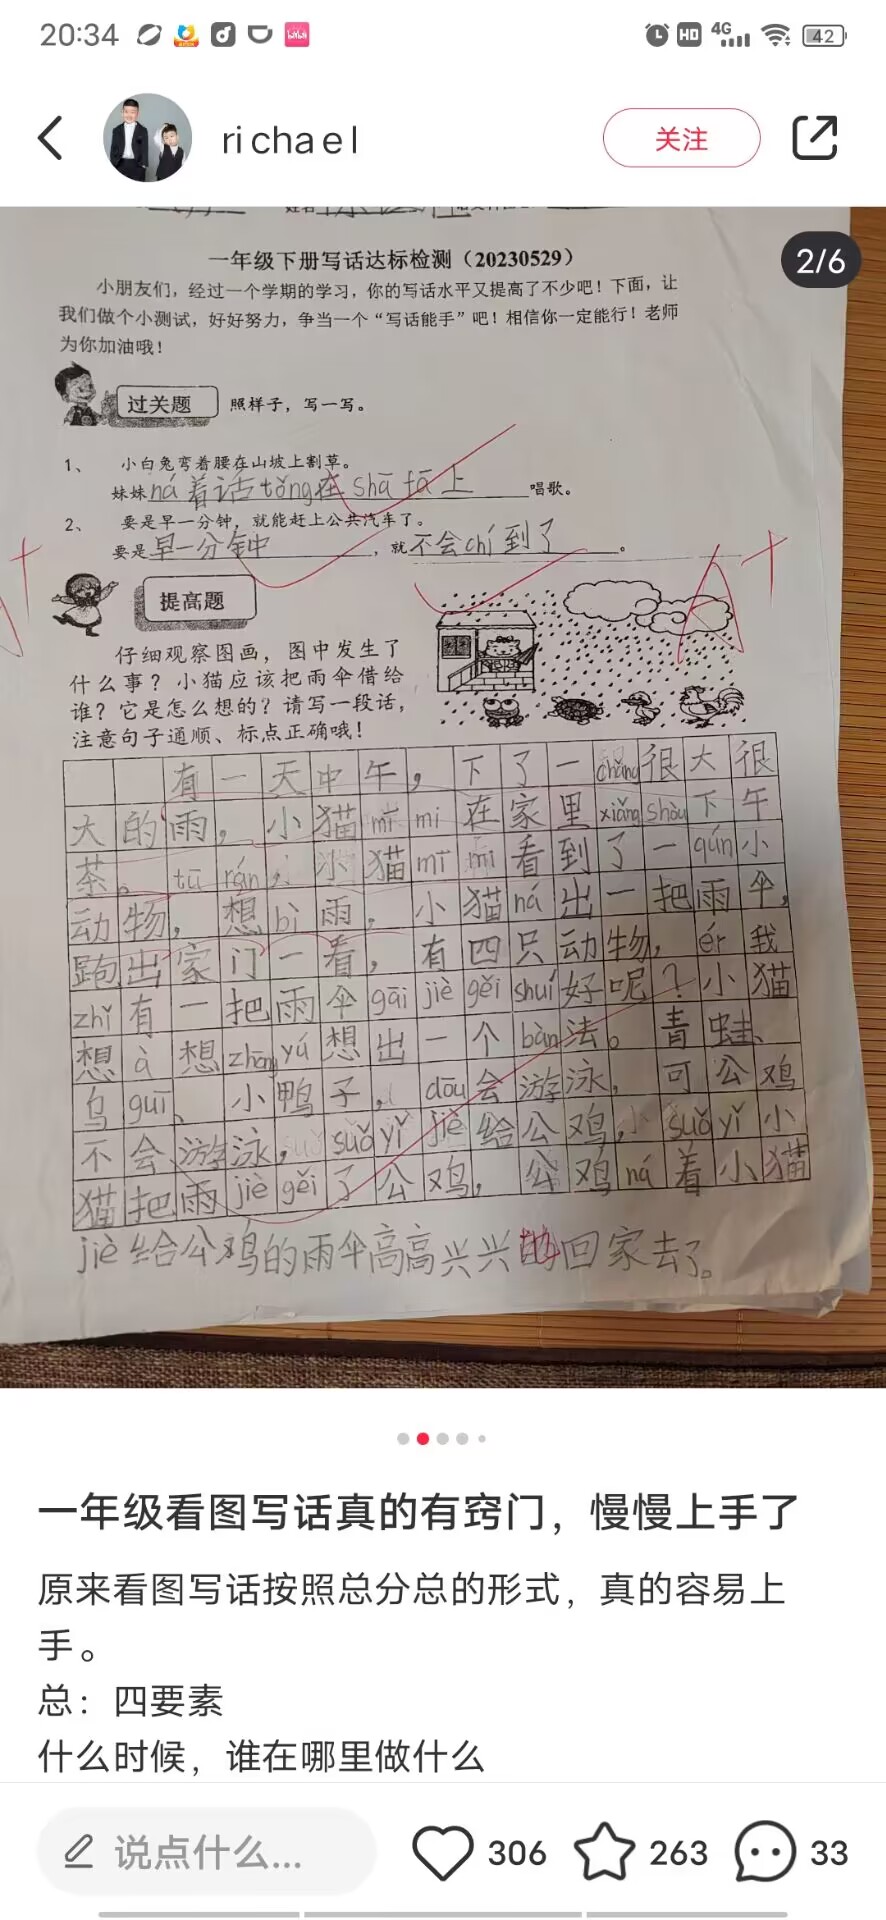 20:34
HD 4G 42
richael
关注
2/6
一年级下册写话达标检测（20230529）
小朋友们，经过一个学期的学习，你的写话水平又提高了不少吧！下面，让
我们做个小测试，好好努力，争当一个“写话能手”吧！相信你一定能行！老师
为你加油哦！
过关题 照样子，写一写。
1、 小白兔弯着腰在山坡上割草。
妹妹ná着话tǒng在shā fā上唱歌。
2、 要是早一分钟，就能赶上公共汽车了。
要是早一分钟，就不会chí到了。
A+
提高题
仔细观察图画，图中发生了
什么事？小猫应该把雨伞借给
谁？它是怎么想的？请写一段话，
注意句子通顺、标点正确哦！
有一天中午，下了一chǎng很大很
大的雨，小猫mī mī在家里xiǎng shòu下午
茶。tū rán，小猫mī mī看到了一qún小
动物，想bì雨，小猫ná出一把雨伞，
跑出家门一看，有四只动物，ér我
zhǐ有一把雨伞gāi jiè gěi shuí好呢？小猫
想à想zhōng yú想出一个bàn法。青蛙、
乌guī、小鸭子，dōu会游泳，可公鸡
不会游泳，suǒ yǐ jiè给公鸡，suǒ yǐ小
猫把雨jiè gěi了公鸡，公鸡ná着小猫
jiè给公鸡的雨伞高高兴兴地回家去了。
一年级看图写话真的有窍门，慢慢上手了
原来看图写话按照总分总的形式，真的容易上
手。
总：四要素
什么时候，谁在哪里做什么
说点什么... 306 263 33